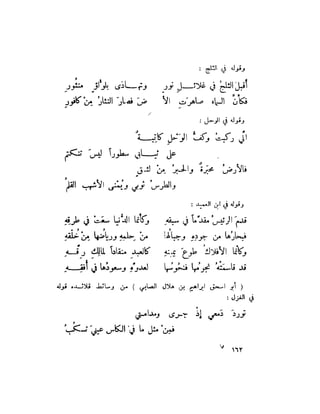 وقوله في الثلج :
أقبل الثلج في غلائـــل نور وتهـــادى بلؤلؤ منثور
فكأن السماء صاهرت الأ ض فصار النثار من كافور
وقوله في الوحل :
اني ركبت وكف الوحل كاتبـــة
على ثيـــابي سطوراً ليس تنكتم
فالأرض محبرة والحبـر من لثق
والطرس ثوبي ويمنى الأشهب القلم
وقوله في ابن العميد :
قدم الرئيس مقدماً في سبقه وكأنما الدنيا سعت في طرقه
فبحارها من جوده وجبالها من حلمه ورياضها من خلقه
وكأنما الأفلاك طوع يمينه كالعبد منقاداً لمالك رقـــه
قد قاسمته نجومها فنحوسها لعدوه وسعودها في أفقـــه
( أبو اسحق ابراهيم بن هلال الصابي ) من وسائط قلائـــده قوله
في الغزل :
تورد دمعي إذ جـرى ومدامتي
فمن مثل ما في الكأس عيني تسكب
١٦٣